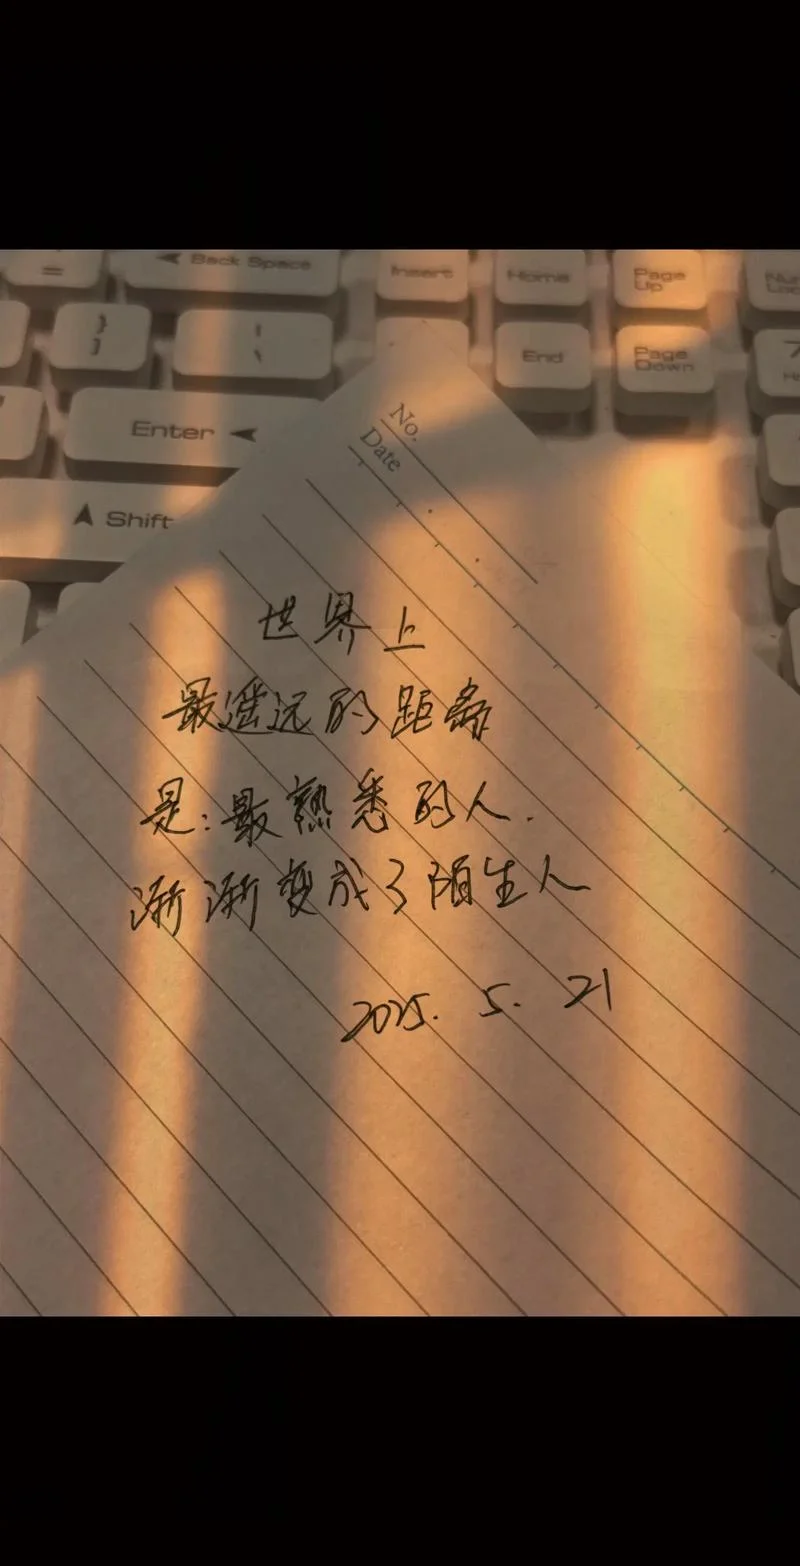 =
Back Space
Insert
Home
Page Up
}
]
End
Page Down
7
Enter
Shift
No.
Date
世界上
最遥远的距离
是:最熟悉的人.
渐渐变成了陌生人
2025. 5. 21